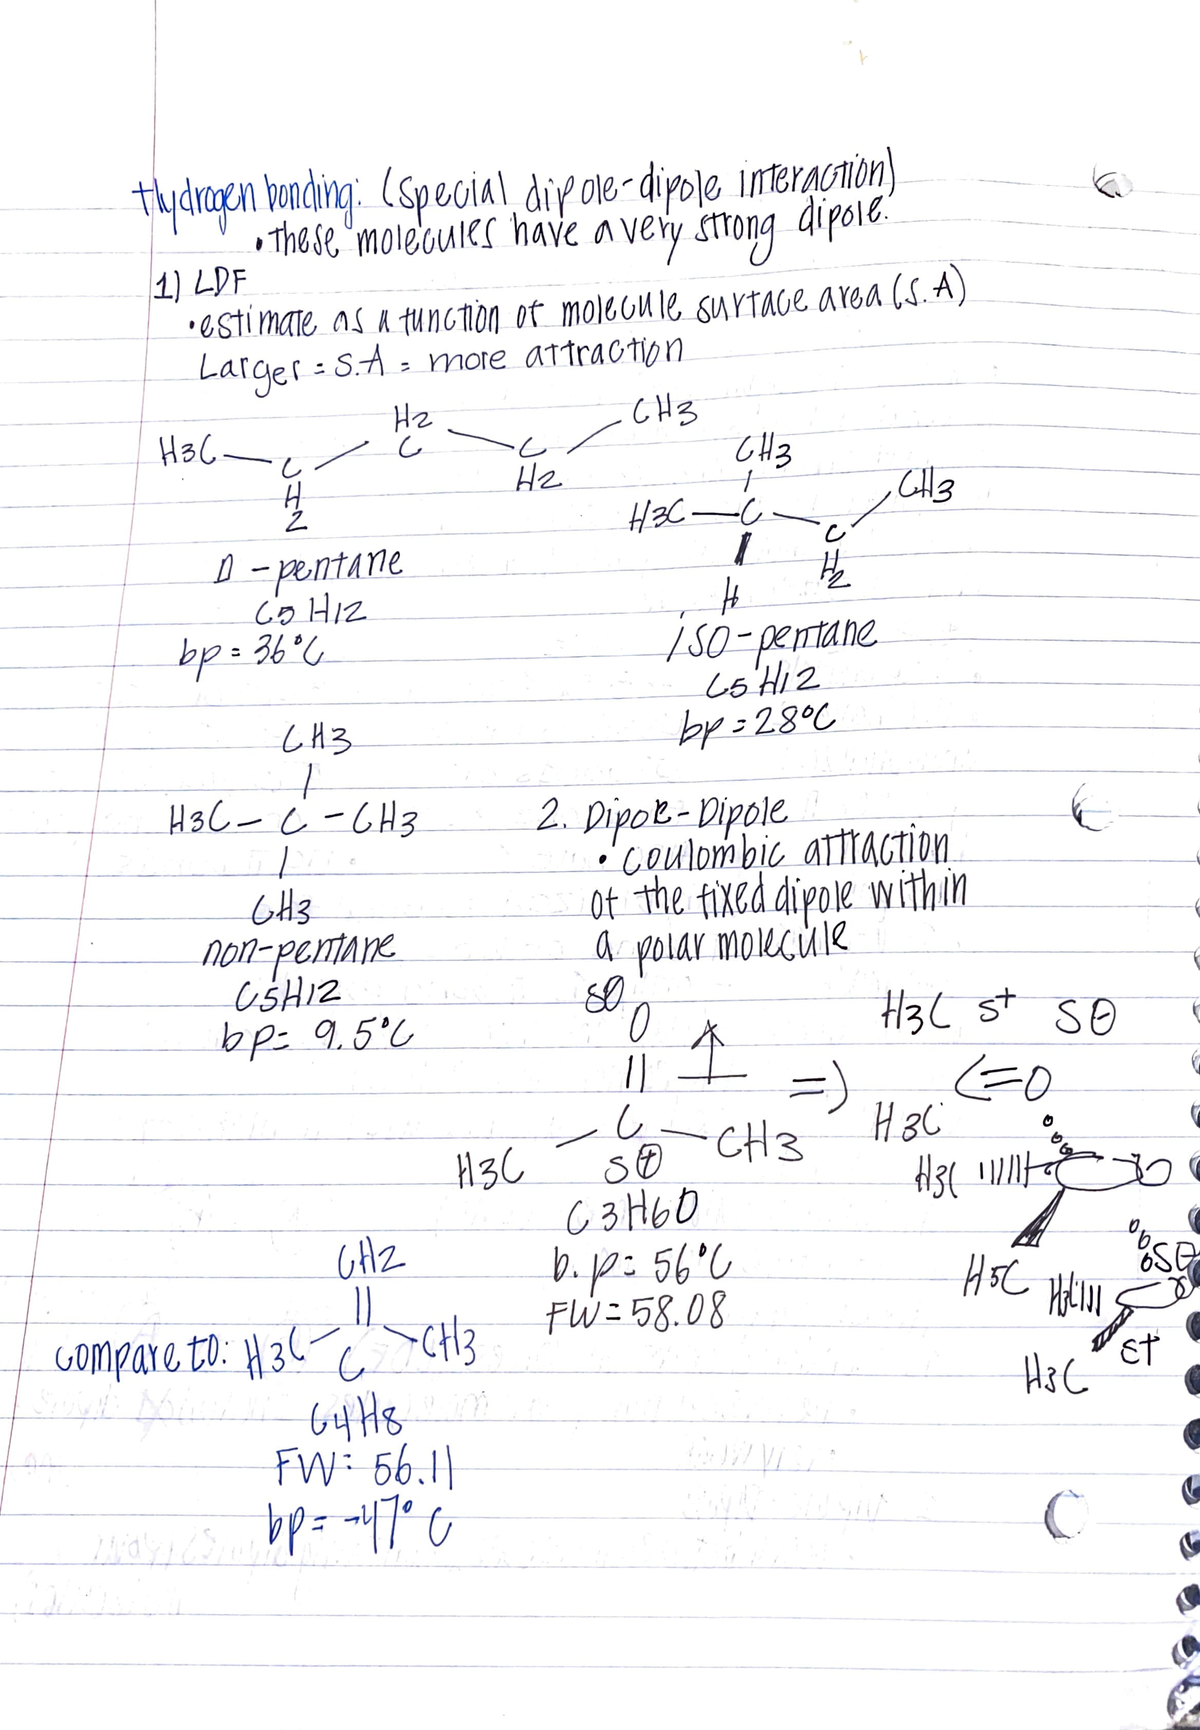 Hydrogen bonding: (Special dipole-dipole interaction)
• These molecules have a very strong dipole.
1) LDF
• estimate as a function of molecule surface area (S.A)
Larger = S.A = more attraction
H2 CH3
H3C C C C
H2 H2
CH3
H3C C CH3
C
H H2
n-pentane
C5H12
bp = 36°C
iso-pentane
C5H12
bp = 28°C
CH3
H3C - C - CH3
CH3
non-pentane
C5H12
bp = 9.5°C
2. Dipole-Dipole
• coulombic attraction
of the fixed dipole within
a polar molecule
δ⊖
O
||
C
H3C CH3
δ⊕
C3H6O
b.p = 56°C
FW = 58.08
=)
H3C δ+ δ⊖
C=O
H3C
H3C
H3C
δ⊖
H3C
δ+
H3C
CH2
||
compare to: H3C C CH3
C4H8
FW: 56.11
bp = -47°C